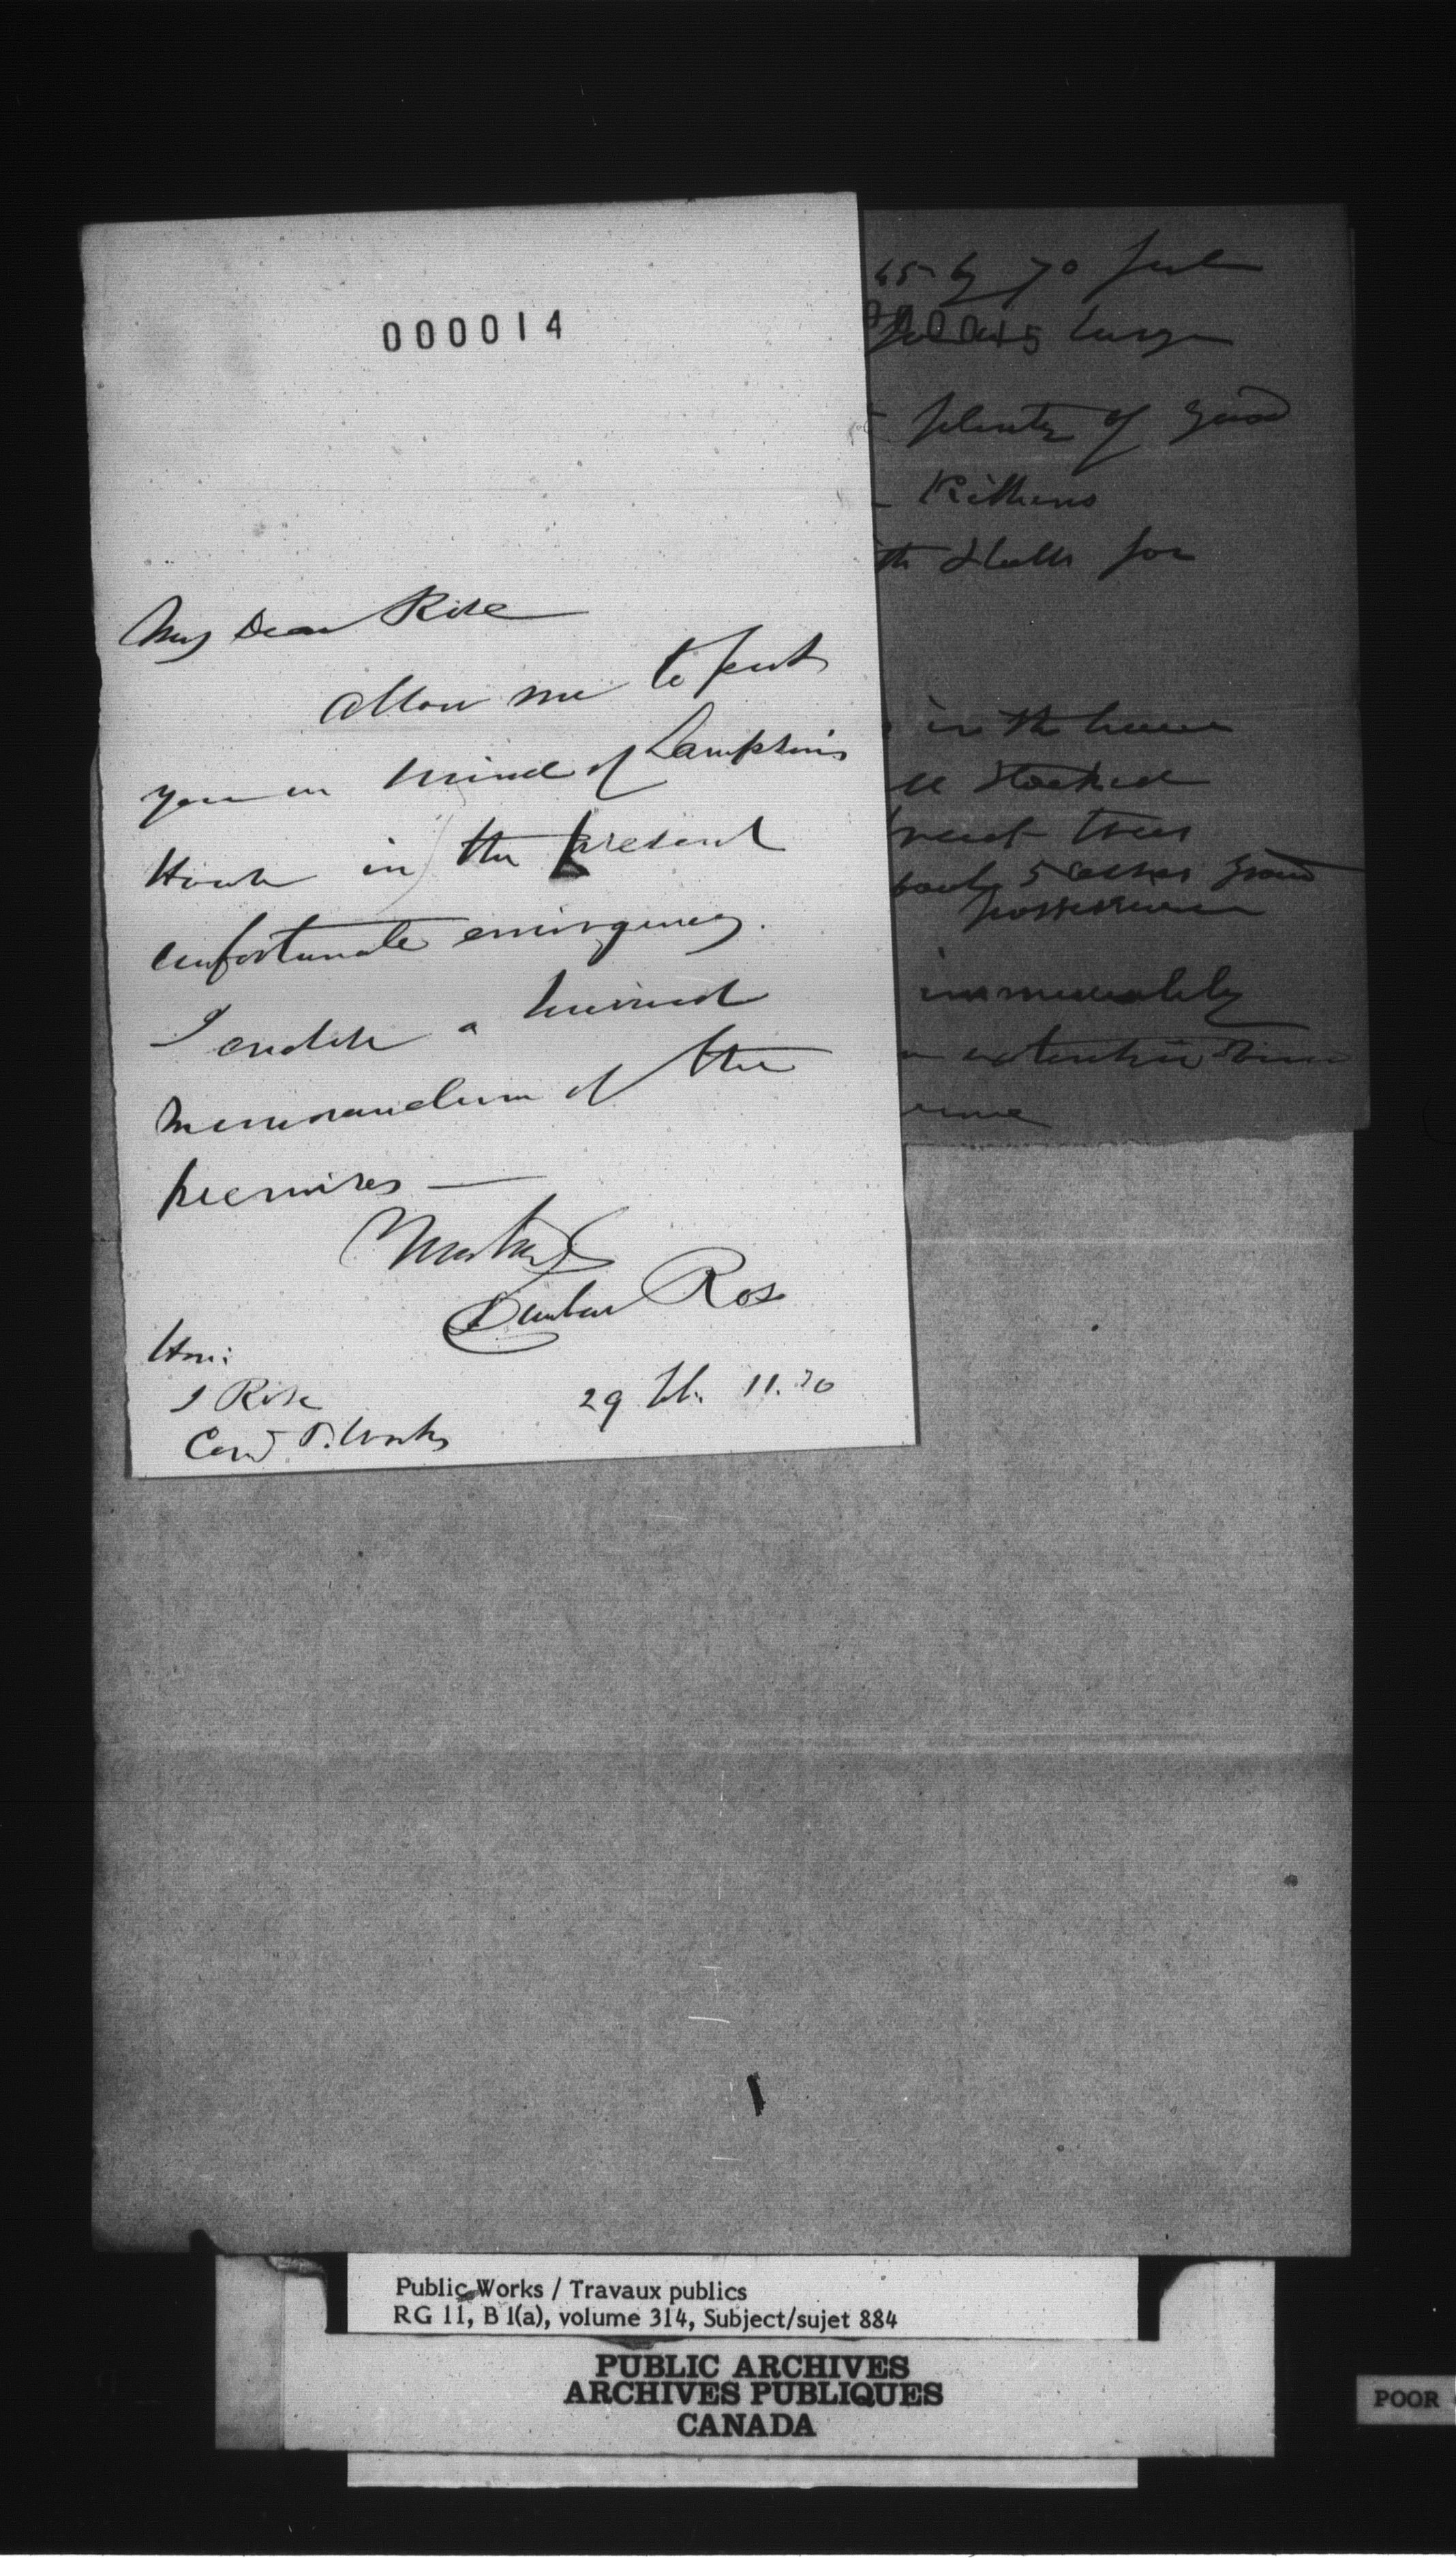 000014
My Dear Rose
Allow me to put
you in mind of Lampson's
House in the present
unfortunate emergency.
I enclose a hurried
memorandum of the
premises —
Dunbar Ross
Hon:
J Rose
Com P. Works
29 11.30
65 by 70 feet
large
plenty of good
Kitchens
th Stalls for
in the house
ll stocked
fruit trees
5 acres ground
possession
immediately
extensive view
Public Works / Travaux publics
RG 11, B 1(a), volume 314, Subject/sujet 884
PUBLIC ARCHIVES
ARCHIVES PUBLIQUES
CANADA
POOR